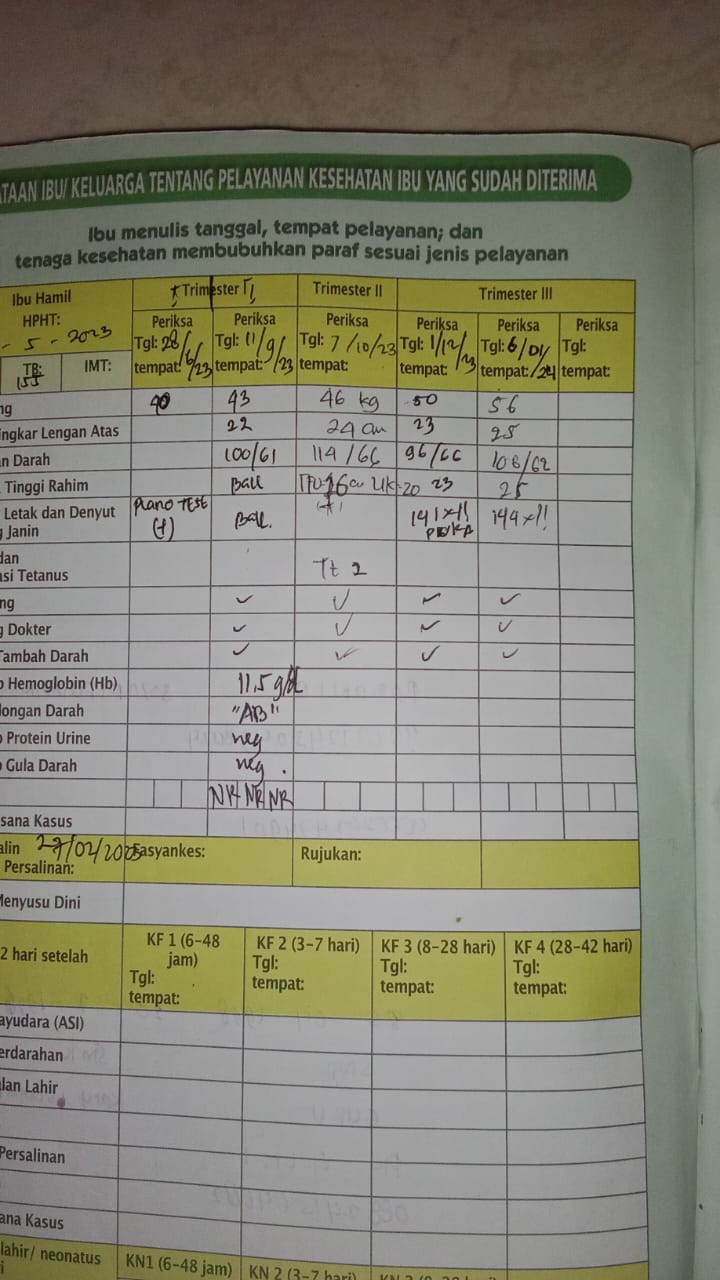 TAAN IBU/ KELUARGA TENTANG PELAYANAN KESEHATAN IBU YANG SUDAH DITERIMA
Ibu menulis tanggal, tempat pelayanan; dan
tenaga kesehatan membubuhkan paraf sesuai jenis pelayanan
Ibu Hamil Trimester I Trimester II Trimester III
HPHT: Periksa Periksa Periksa Periksa Periksa Periksa
- 5 - 2023 Tgl: 28/6/23 Tgl: 11/9/23 Tgl: 7/10/23 Tgl: 1/12/23 Tgl: 6/01/24 Tgl:
TB: 155 IMT: tempat: tempat: tempat: tempat: tempat: tempat:
ng 40 43 46 kg 50 56
ingkar Lengan Atas 22 24 cm 23 25
n Darah 100/61 114/66 96/66 106/62
Tinggi Rahim Ball TFU 16 cm UK 20 23 25
Letak dan Denyut Plano TEST Ball. (+) 141 x/! 144 x/!
Janin (+)
dan
asi Tetanus Tt 2
ng ✓ ✓ ✓ ✓
Dokter ✓ ✓ ✓ ✓
Tambah Darah ✓ ✓ ✓ ✓
Hemoglobin (Hb) 11,5 g/dl
longan Darah "AB"
Protein Urine neg
Gula Darah neg.
NR NR NR
sana Kasus
alin 27/02/2025 Fasyankes: Rujukan:
Persalinan:
Menyusu Dini
2 hari setelah KF 1 (6-48 jam) KF 2 (3-7 hari) KF 3 (8-28 hari) KF 4 (28-42 hari)
Tgl: Tgl: Tgl: Tgl:
tempat: tempat: tempat: tempat:
ayudara (ASI)
erdarahan
lan Lahir
Persalinan
ana Kasus
lahir/ neonatus KN1 (6-48 jam) KN 2 (3-7 hari)